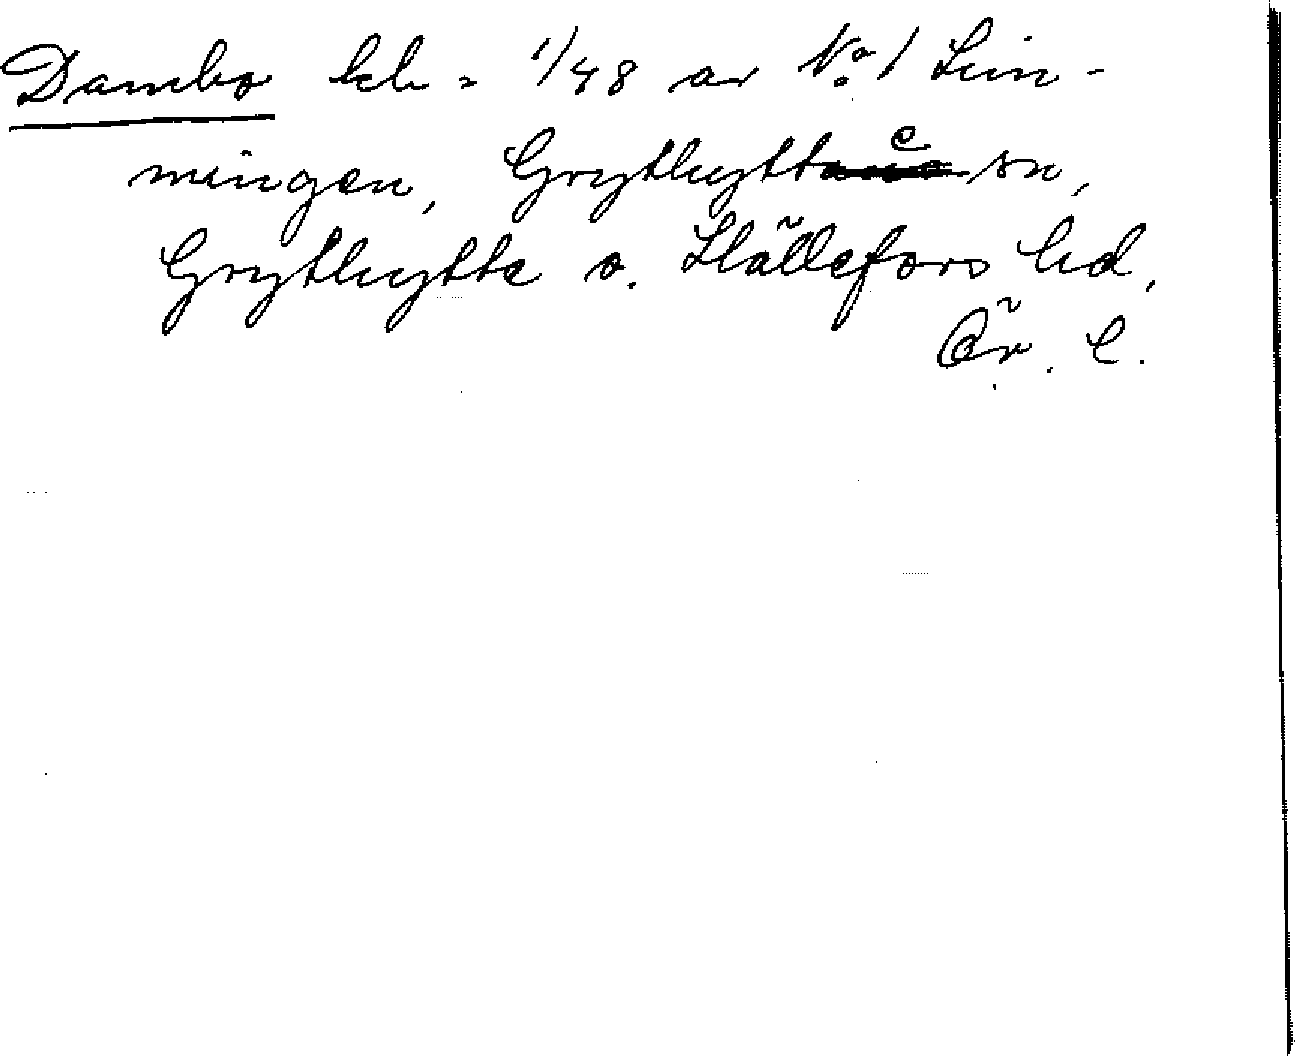 Dambo lch = 1/48 av No. 1 Lim-
mingen, Grythytte sn,
Grythytte o. Hällefors hd,
Ör. l.